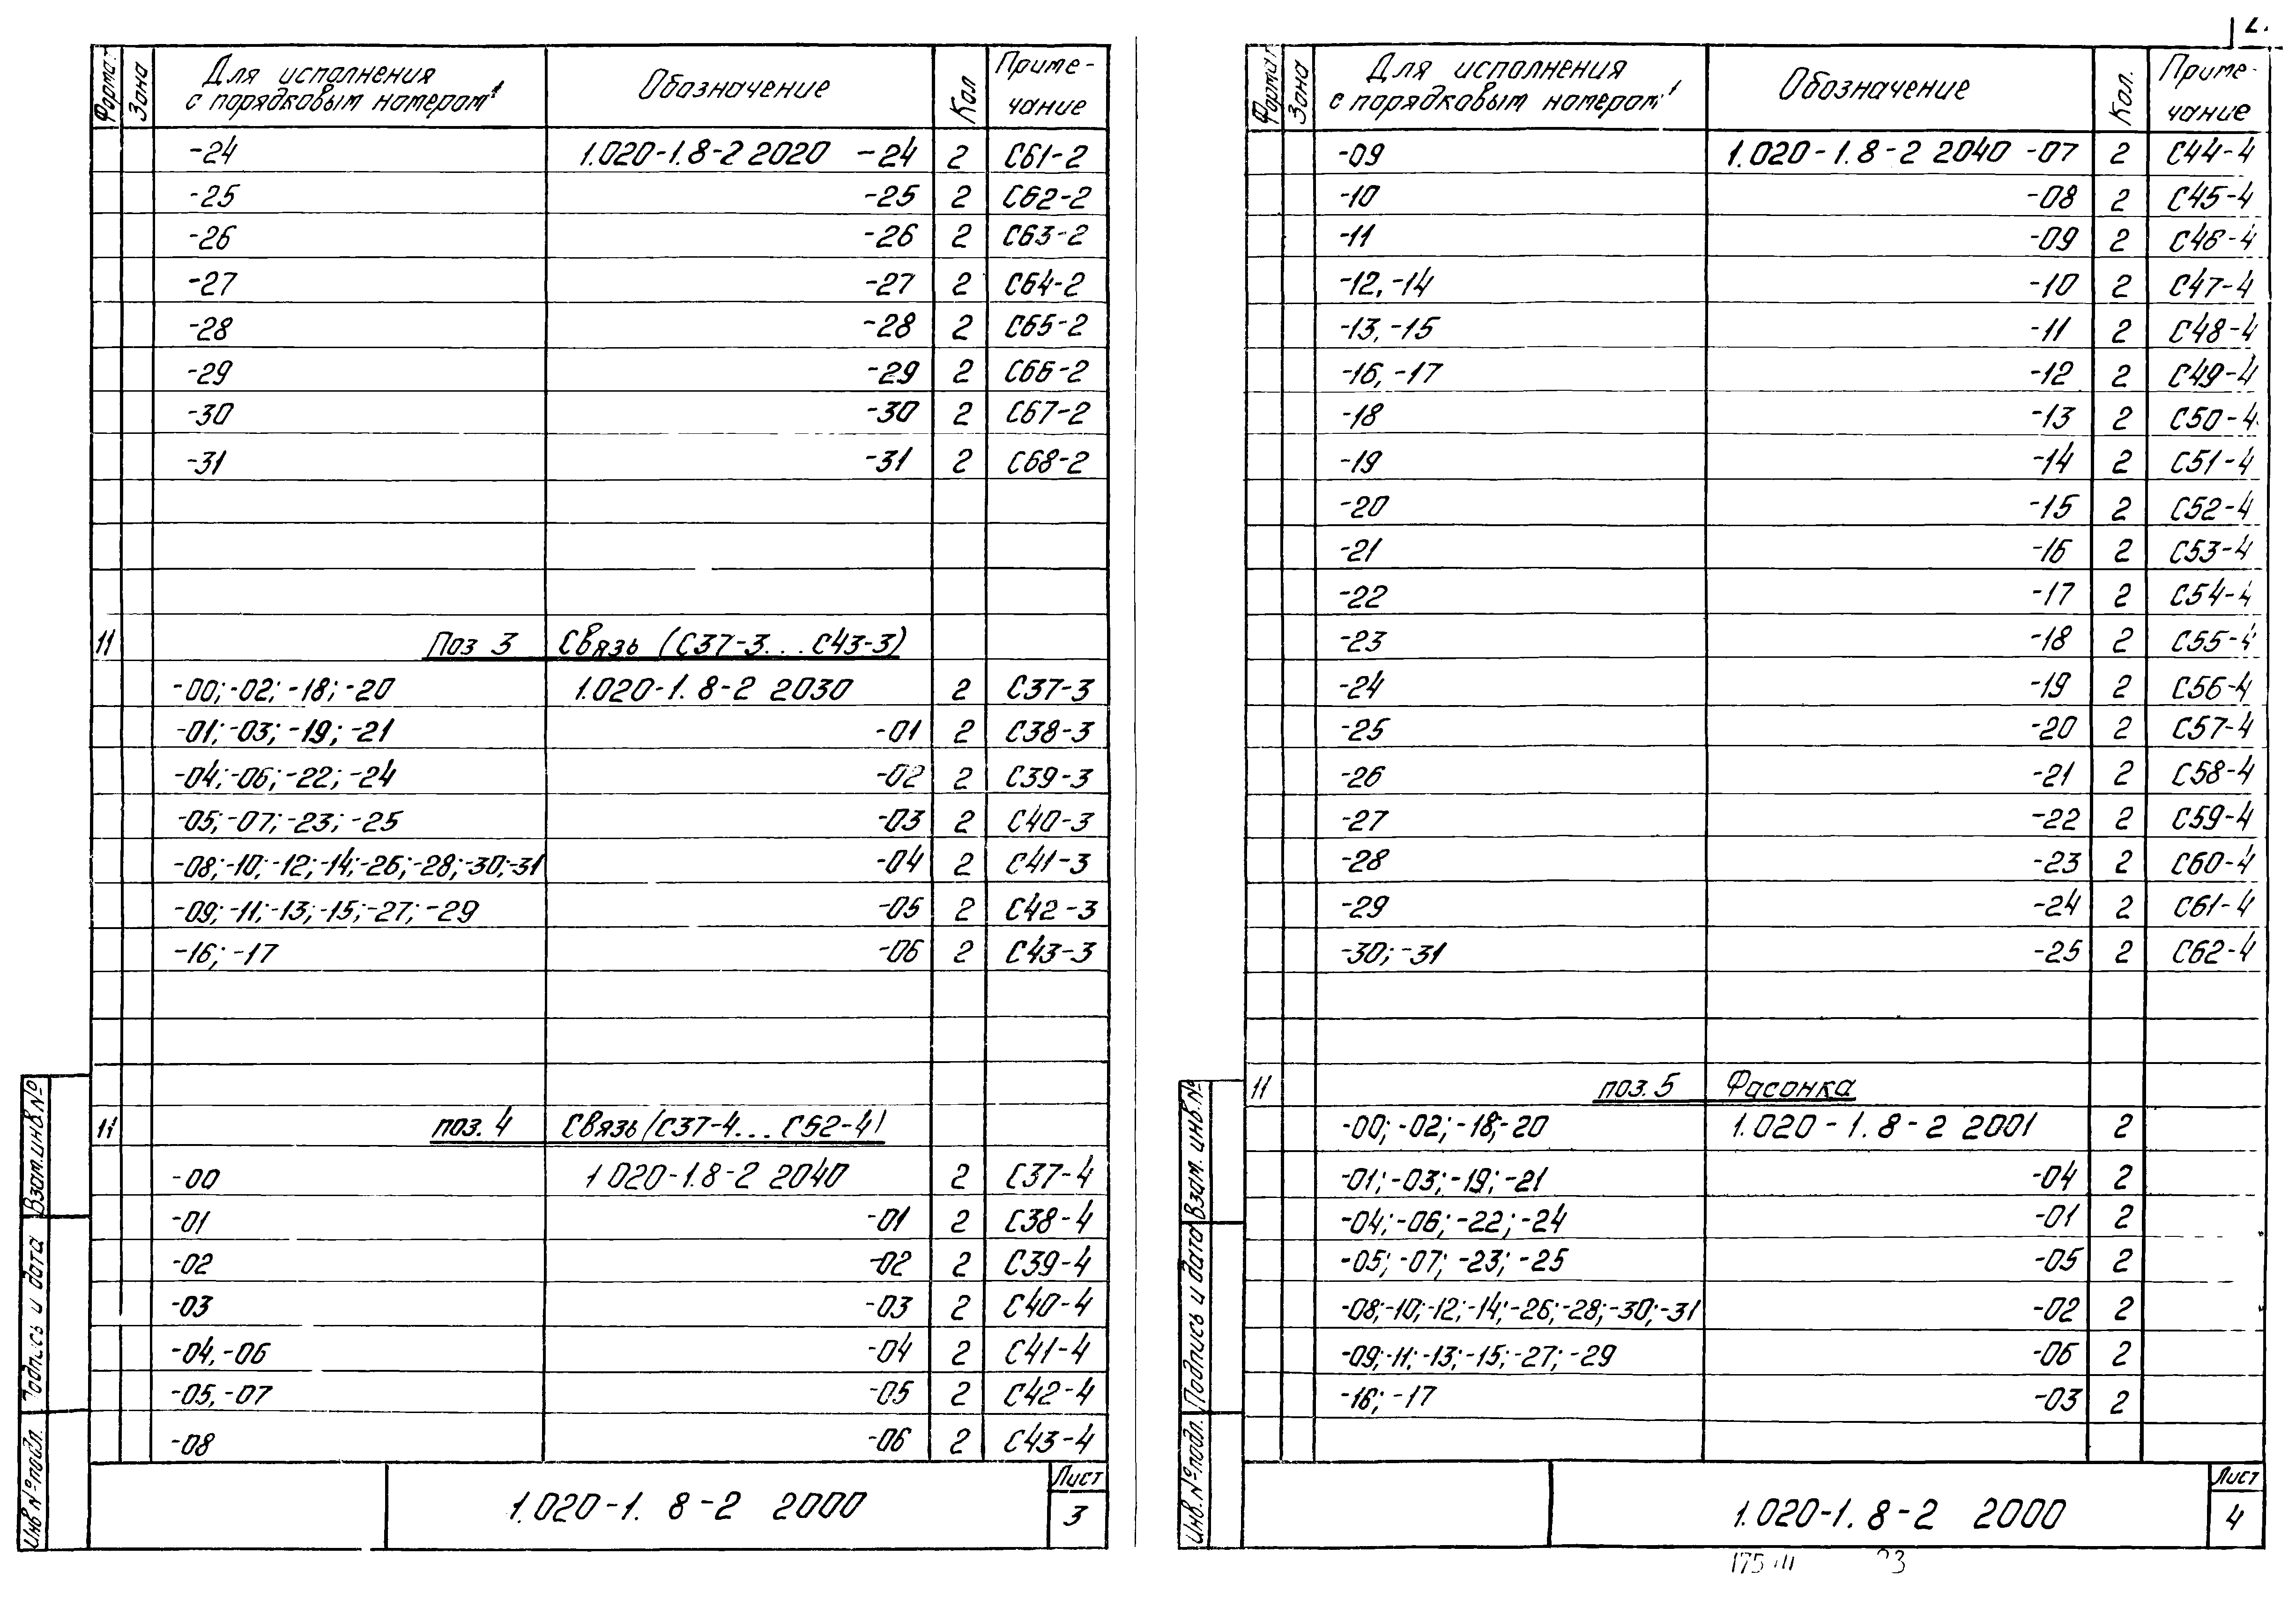 Формат Зона Для исполнения с порядковым номером¹ Обозначение Кол Приме-чание
-24 1.020-1.8-2 2020 -24 2 С61-2
-25 -25 2 С62-2
-26 -26 2 С63-2
-27 -27 2 С64-2
-28 -28 2 С65-2
-29 -29 2 С66-2
-30 -30 2 С67-2
-31 -31 2 С68-2
11 Поз 3 Связь (С37-3...С43-3)
-00; -02; -18; -20 1.020-1.8-2 2030 2 С37-3
-01; -03; -19; -21 -01 2 С38-3
-04; -06; -22; -24 -02 2 С39-3
-05; -07; -23; -25 -03 2 С40-3
-08; -10; -12; -14; -26; -28; -30; -31 -04 2 С41-3
-09; -11; -13; -15; -27; -29 -05 2 С42-3
-16; -17 -06 2 С43-3
11 поз. 4 Связь (С37-4...С62-4)
-00 1 020-1.8-2 2040 2 С37-4
-01 -01 2 С38-4
-02 -02 2 С39-4
-03 -03 2 С40-4
-04, -06 -04 2 С41-4
-05, -07 -05 2 С42-4
-08 -06 2 С43-4
1.020-1. 8-2 2000
Лист
3
Инв № подл. Подпись и дата Взам.инв.№
Формат Зона Для исполнения с порядковым номером¹ Обозначение Кол. Приме-чание
-09 1.020-1.8-2 2040 -07 2 С44-4
-10 -08 2 С45-4
-11 -09 2 С46-4
-12, -14 -10 2 С47-4
-13, -15 -11 2 С48-4
-16, -17 -12 2 С49-4
-18 -13 2 С50-4
-19 -14 2 С51-4
-20 -15 2 С52-4
-21 -16 2 С53-4
-22 -17 2 С54-4
-23 -18 2 С55-4
-24 -19 2 С56-4
-25 -20 2 С57-4
-26 -21 2 С58-4
-27 -22 2 С59-4
-28 -23 2 С60-4
-29 -24 2 С61-4
-30; -31 -25 2 С62-4
11 поз. 5 Фасонка
-00; -02; -18; -20 1.020-1.8-2 2001 2
-01; -03; -19; -21 -04 2
-04; -06; -22; -24 -01 2
-05; -07; -23; -25 -05 2
-08; -10; -12; -14; -26; -28; -30; -31 -02 2
-09; -11; -13; -15; -27; -29 -06 2
-16; -17 -03 2
1.020-1. 8-2 2000
Лист
4
Инв. № подл. Подпись и дата Взам. инв. №